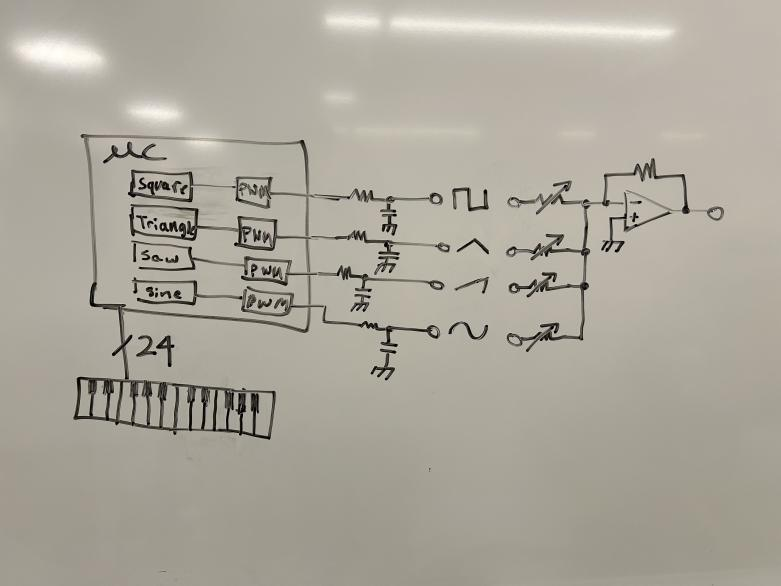 μC
Square PWM
Triangle PWM
Saw PWM
Sine PWM
24
-
+